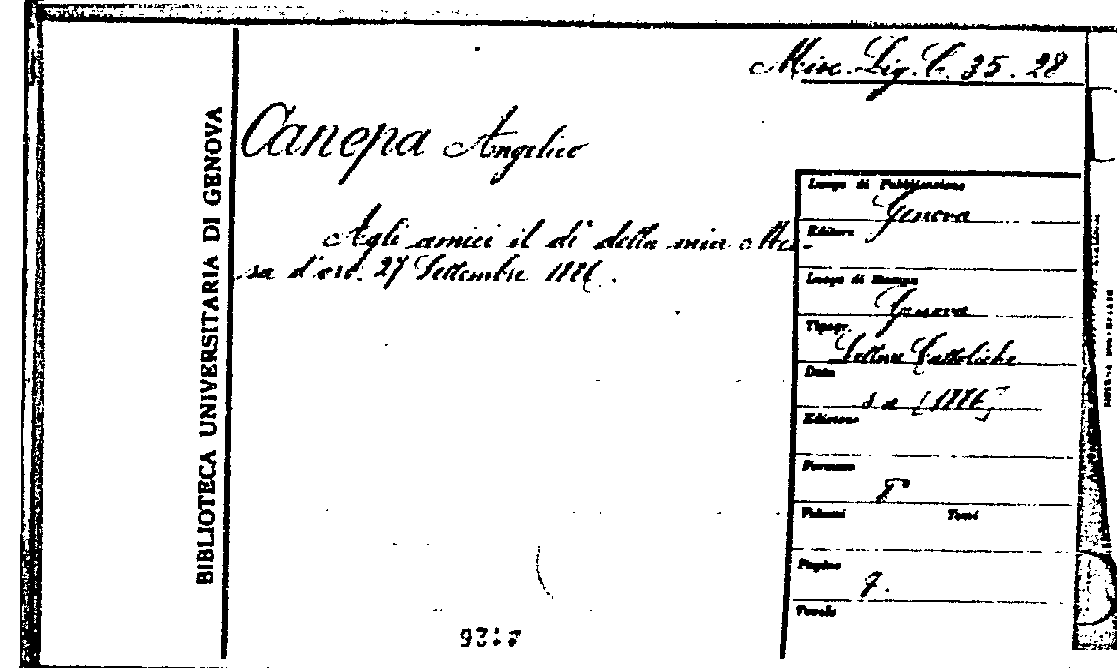 Misc. Lig. C. 35. 28
BIBLIOTECA UNIVERSITARIA DI GENOVA
Canepa Angelico
Agli amici il dì della mia Mes-
sa d'oro. 27 Settembre 1886.
Luogo di Pubblicazione
Genova
Editore
Luogo di Stampa
Genova
Tipogr.
Letture Cattoliche
Data
s. a [1886]
Edizione
Formato
8°
Volumi Tomi
Pagine
7.
Tavole